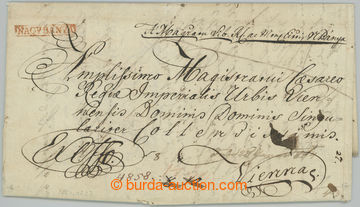 NAGYBANYA
A Magistratu
Amplissimo Magistratui Cæsareo
Regiæ Imperialis Urbis Vien-
nensis Dominis Dominis Singu-
lariter Collendissimis
Ex Offo.
Viennas
1858.
burda-auction.com